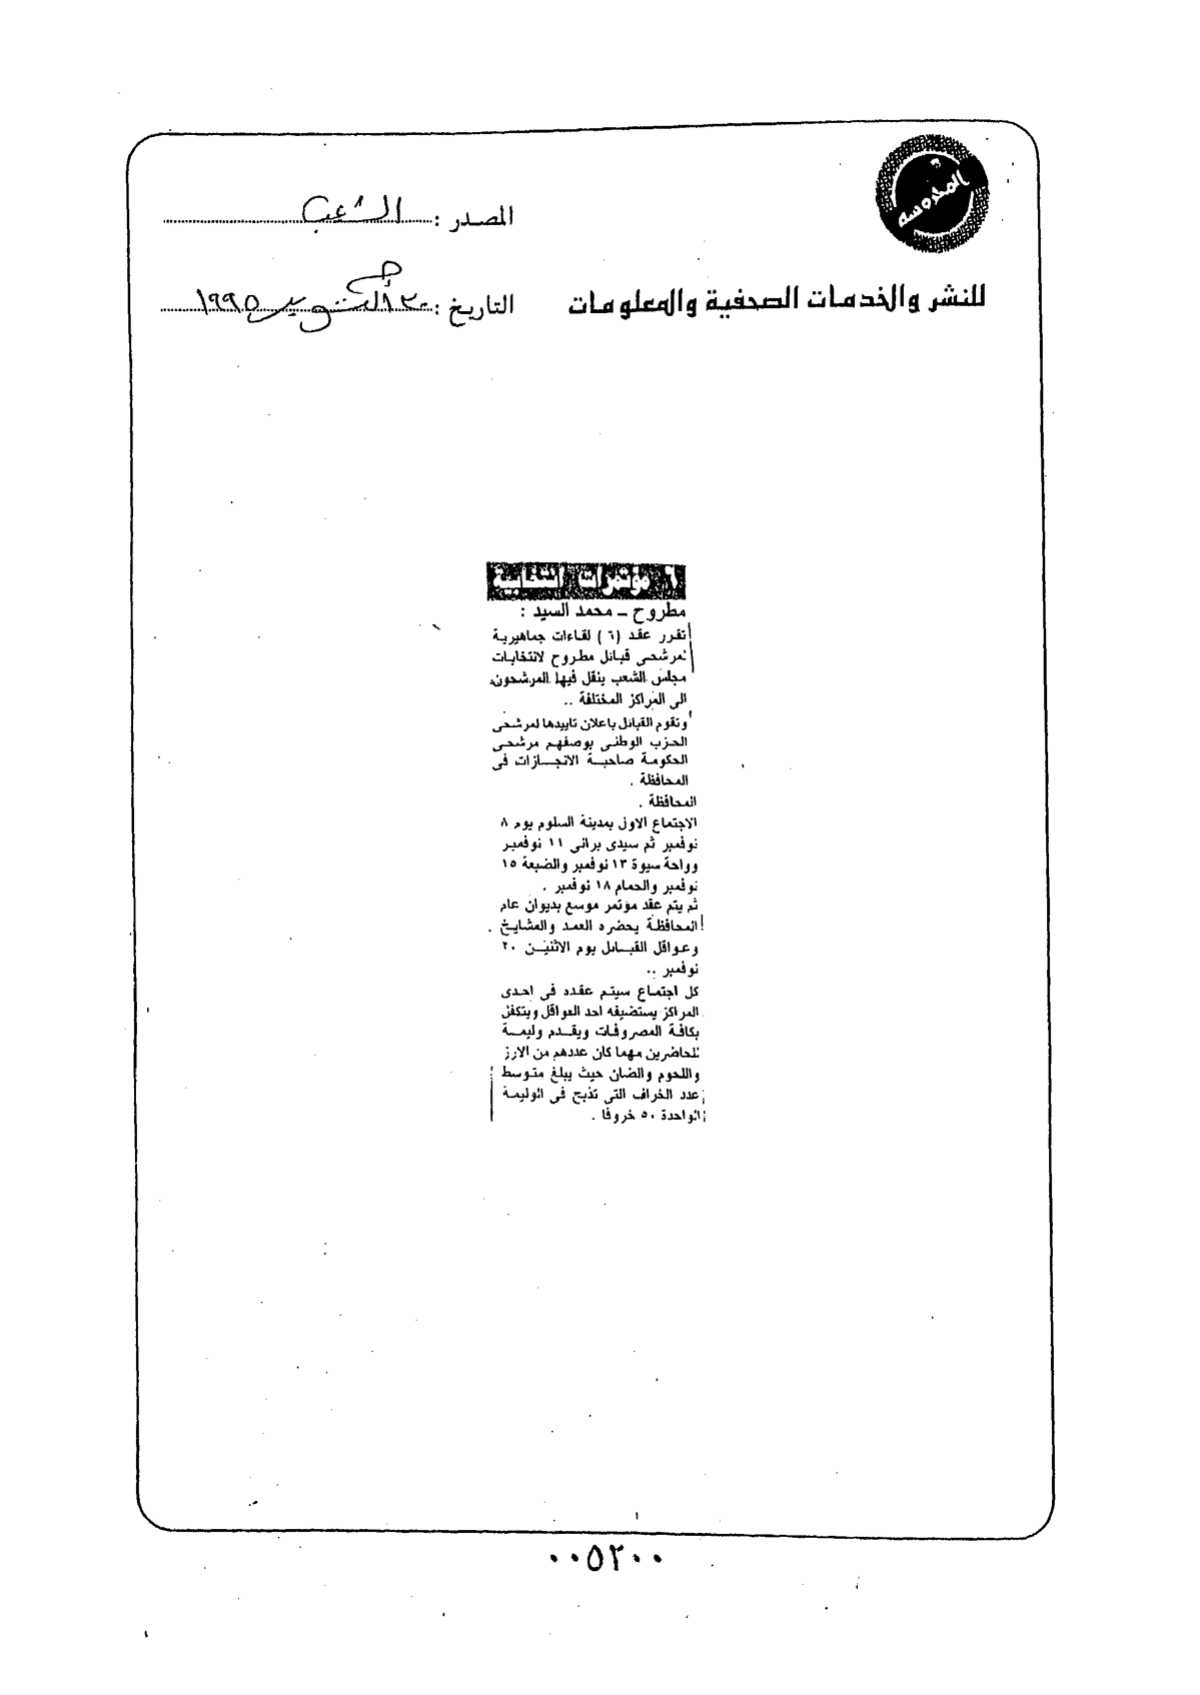 المحروسة
المصدر : الشعب
للنشر والخدمات الصحفية والمعلومات
التاريخ : ٢٠ أكتوبر ١٩٩٥
٦ مؤتمرات انتخابية
مطروح - محمد السيد :
تقرر عقد (٦) لقاءات جماهيرية
لمرشحى قبائل مطروح لانتخابات
مجلس الشعب ينقل فيها المرشحون
الى المراكز المختلفة ..
وتقوم القبائل باعلان تاييدها لمرشحى
الحزب الوطنى بوصفهم مرشحى
الحكومة صاحبة الانجازات فى
المحافظة .
المحافظة .
الاجتماع الاول بمدينة السلوم يوم ٨
نوفمبر ثم سيدى برانى ١١ نوفمبر
وواحة سيوة ١٣ نوفمبر والضبعة ١٥
نوفمبر والحمام ١٨ نوفمبر .
ثم يتم عقد مؤتمر موسع بديوان عام
المحافظة يحضره العمد والمشايخ .
وعواقل القبائل يوم الاثنين ٢٠
نوفمبر ..
كل اجتماع سيتم عقده فى احدى
المراكز يستضيفه احد العواقل ويتكفل
بكافة المصروفات ويقدم وليمة
للحاضرين مهما كان عددهم من الارز
واللحوم والضان حيث يبلغ متوسط
عدد الخراف التى تذبح فى الوليمة
الواحدة ٥٠ خروفا .
٠٠٥٢٠٠